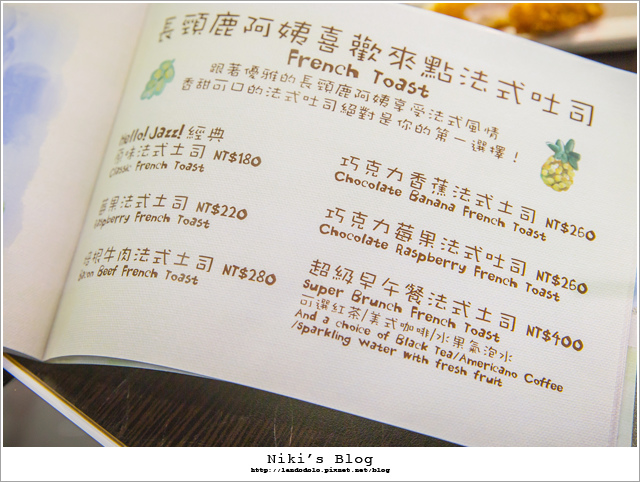 長頸鹿阿姨喜歡來點法式吐司
French Toast
跟著優雅的長頸鹿阿姨享受法式風情
香甜可口的法式吐司絕對是你的第一選擇！
Hello! Jazz! 經典
原味法式土司 NT$180
Classic French Toast
莓果法式土司 NT$220
Raspberry French Toast
培根牛肉法式土司 NT$280
Bacon Beef French Toast
巧克力香蕉法式土司 NT$260
Chocolate Banana French Toast
巧克力莓果法式吐司 NT$260
Chocolate Raspberry French Toast
超級早午餐法式土司 NT$400
Super Brunch French Toast
可選紅茶/美式咖啡/水果氣泡水
And a choice of Black Tea/Americano Coffee
/sparkling water with fresh fruit
Niki's Blog
http://landodolo.pixnet.net/blog